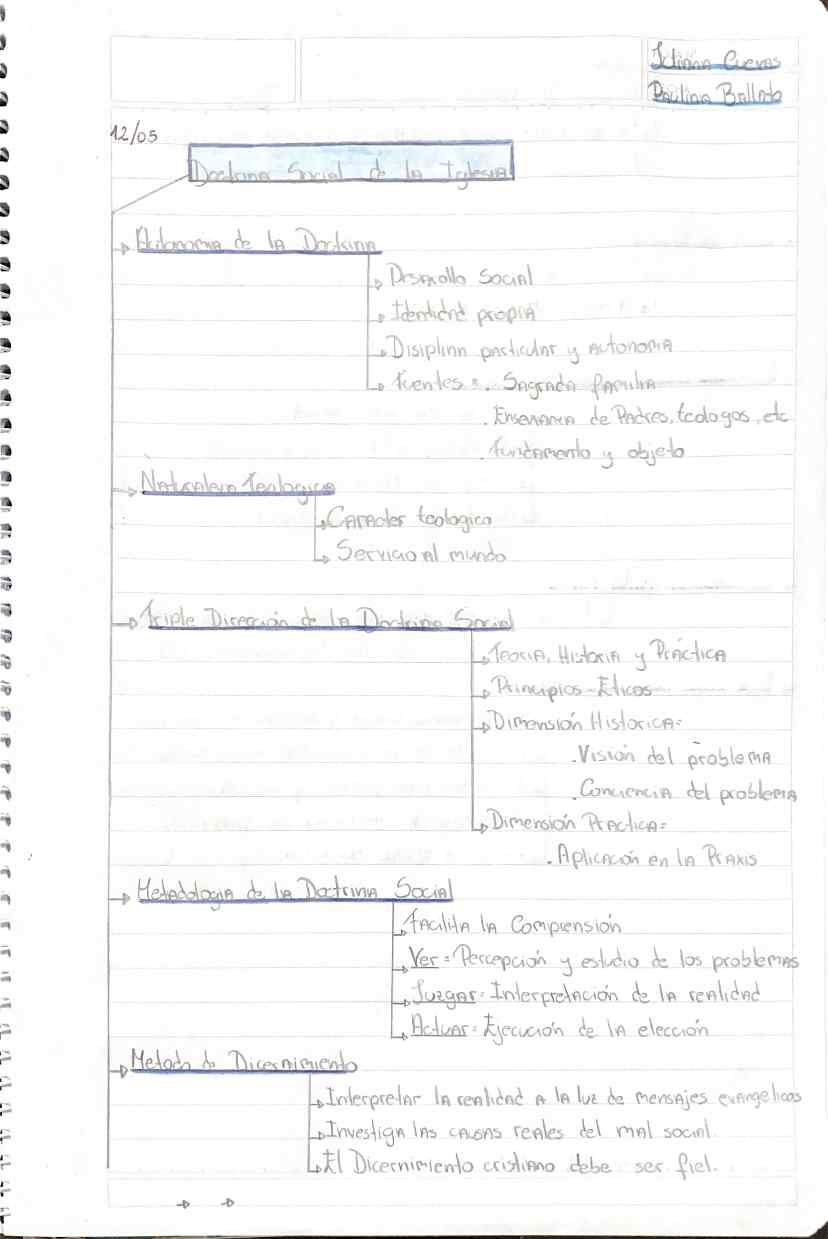 Juliana Cuevas
Paulina
12/05
Doctrina Social de la Iglesia
Autonomia de la Doctrina
Desarrollo Social
Identidad propia
Disiplina particular y autonomia
Fuentes: . Sagrada familia
. Enseñanza de Padres, teologos, etc
. Fundamento y objeto
Naturaleza Teologica
Caracter teologico
Servicio al mundo
Triple Dirección de la Doctrina Social
Teoria, Historia y Práctica
Principios Eticos
Dimensión Historica:
. Visión del problema
. Conciencia del problema
Dimensión Practica:
. Aplicación en la Praxis
Metodologia de la Doctrina Social
Facilita la Comprensión
Ver: Percepción y estudio de los problemas
Juzgar: Interpretación de la realidad
Actuar: Ejecución de la elección
Metodo de Dicernimiento
Interpretar la realidad a la luz de mensajes evangelicos
Investiga las causas reales del mal social.
El Dicernimiento cristiano debe ser fiel.